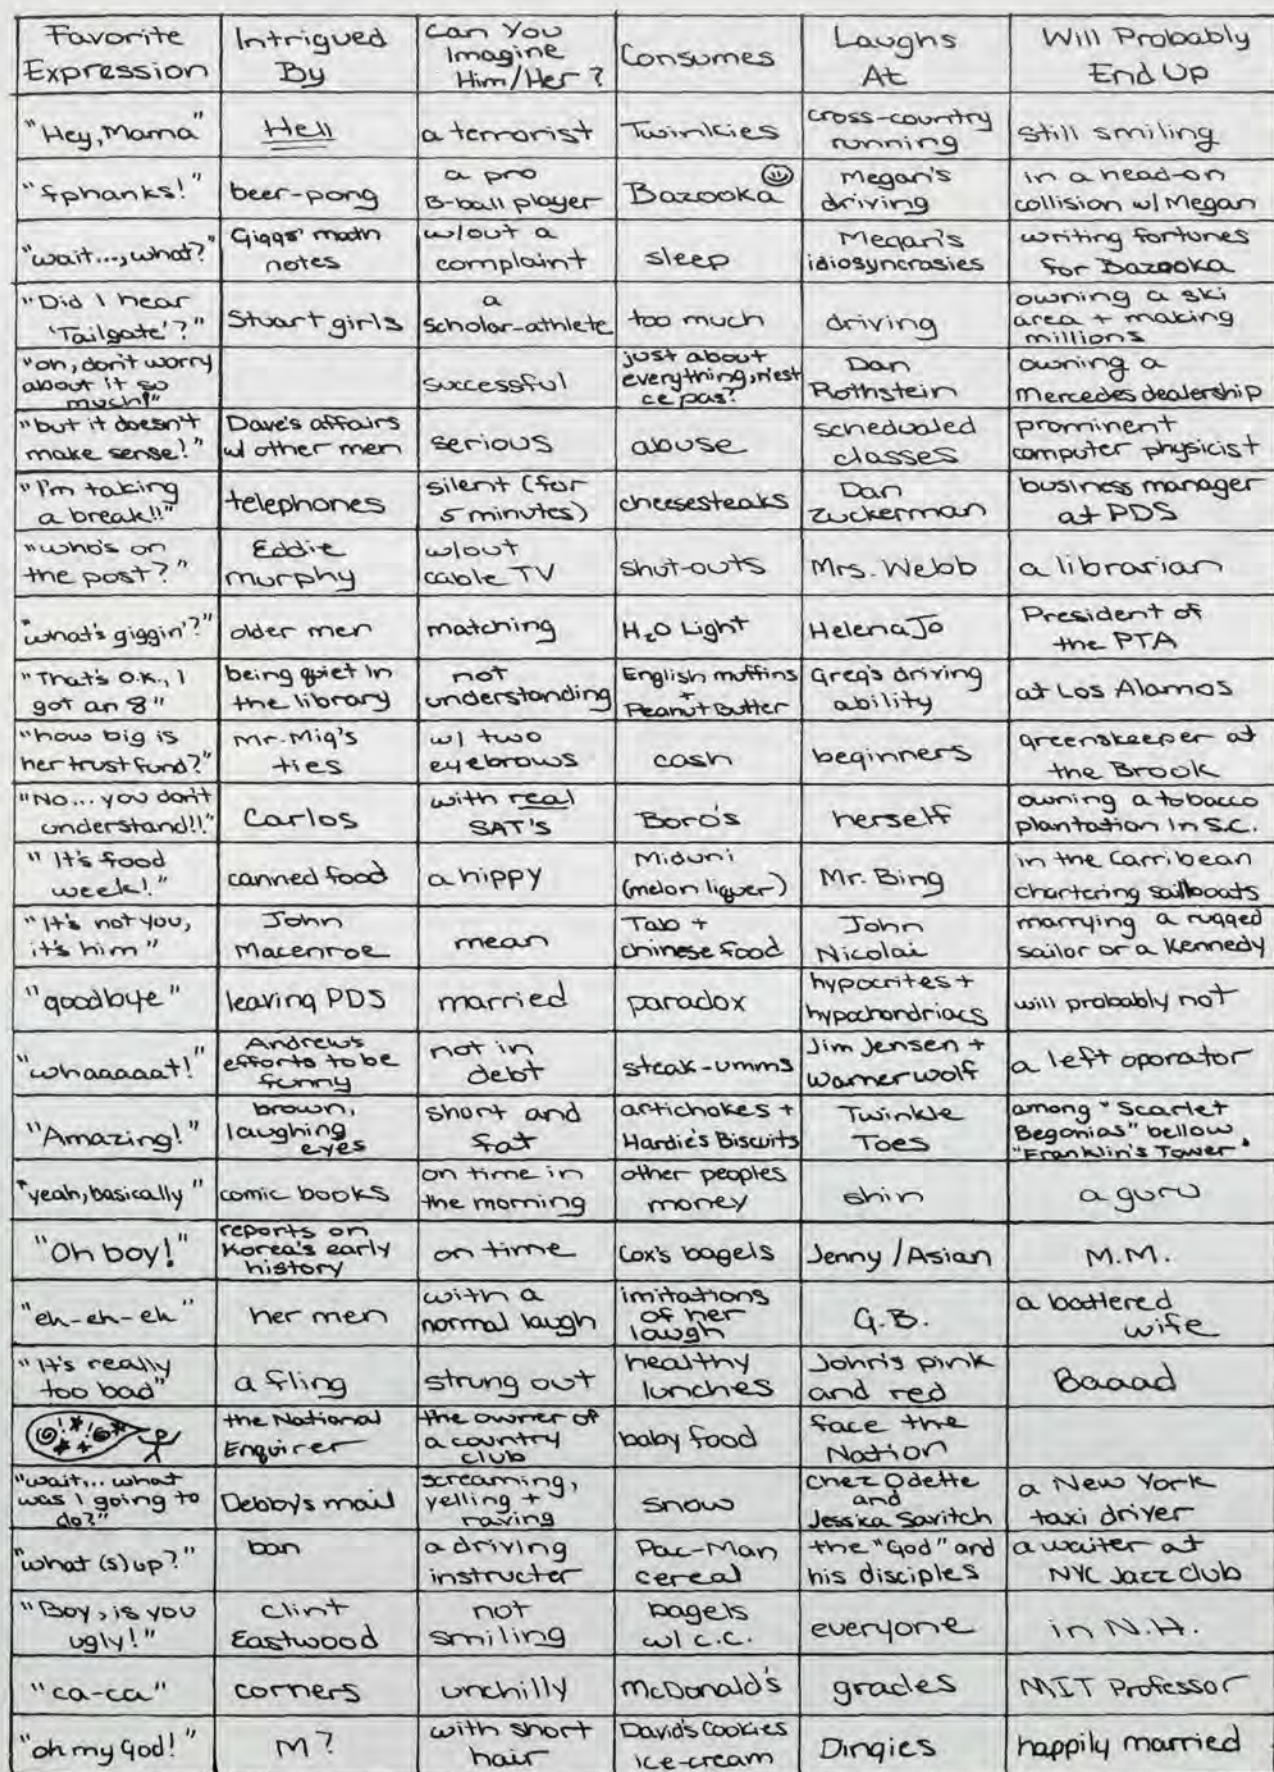 Favorite Expression | Intrigued By | Can You Imagine Him/Her? | Consumes | Laughs At | Will Probably End Up
"Hey, Mama" | Hell | a terrorist | Twinkies | cross-country running | still smiling
"fphanks!" | beer-pong | a pro B-ball player | Bazooka | Megan's driving | in a head-on collision w/ Megan
"wait..., what?" | Giggs' math notes | w/out a complaint | sleep | Megan's idiosyncrasies | writing fortunes for Bazooka
"Did I hear 'Tailgate'?" | Stuart girls | a scholar-athlete | too much | driving | owning a ski area + making millions
"oh, don't worry about it so much!" | | successful | just about everything, n'est ce pas? | Dan Rothstein | owning a Mercedes dealership
"but it doesn't make sense!" | Dave's affairs w/ other men | serious | abuse | schedualed classes | prominent computer physicist
"I'm taking a break!!" | telephones | silent (for 5 minutes) | cheesesteaks | Dan Zuckerman | business manager at PDS
"who's on the post?" | Eddie murphy | w/out cable TV | shut-outs | Mrs. Webb | a librarian
"what's giggin'?" | older men | matching | H2O Light | Helena Jo | President of the PTA
"That's O.K., I got an 8" | being quiet in the library | not understanding | English muffins + Peanut Butter | Greg's driving ability | at Los Alamos
"how big is her trust fund?" | Mr. Miq's ties | w/ two eyebrows | cash | beginners | greenskeeper at the Brook
"No... you don't understand!!" | Carlos | with real SAT's | Boro's | herself | owning a tobacco plantation in S.C.
"It's food week!" | canned food | a hippy | Miduni (melon liquer) | Mr. Bing | in the Carribean chartering sailboats
"It's not you, it's him" | John Macenroe | mean | Tab + chinese food | John Nicolai | marrying a rugged sailor or a Kennedy
"goodbye" | leaving PDS | married | paradox | hypocrites + hypochondriacs | will probably not
"whaaaaat!" | Andrew's efforts to be funny | not in debt | steak-umms | Jim Jensen + Warner wolf | a left oporator
"Amazing!" | brown, laughing eyes | short and fat | artichokes + Hardie's Biscuits | Twinkle Toes | among "Scarlet Begonias" bellow "Franklin's Tower".
"yeah, basically" | comic books | on time in the morning | other peoples money | shin | a guru
"Oh boy!" | reports on Korea's early history | on time | Cox's bagels | Jenny/Asian | M.M.
"eh-eh-eh" | her men | with a normal laugh | imitations of her laugh | G.B. | a battered wife
"It's really too bad" | a fling | strung out | healthy lunches | John's pink and red | Baaad
| the National Enquirer | the owner of a country club | baby food | face the Nation |
"wait... what was I going to do?" | Debby's mail | screaming, yelling + raving | snow | Chez Odette and Jessica Savitch | a New York taxi driver
"what (s)up?" | ban | a driving instructor | Pac-Man cereal | the "God" and his disciples | a waiter at NYC Jazz club
"Boy, is you ugly!" | Clint Eastwood | not smiling | bagels w/ c.c. | everyone | in N.H.
"ca-ca" | corners | unchilly | McDonald's | grades | MIT Professor
"oh my God!" | M? | with short hair | David's Cookies ice-cream | Dingies | happily married